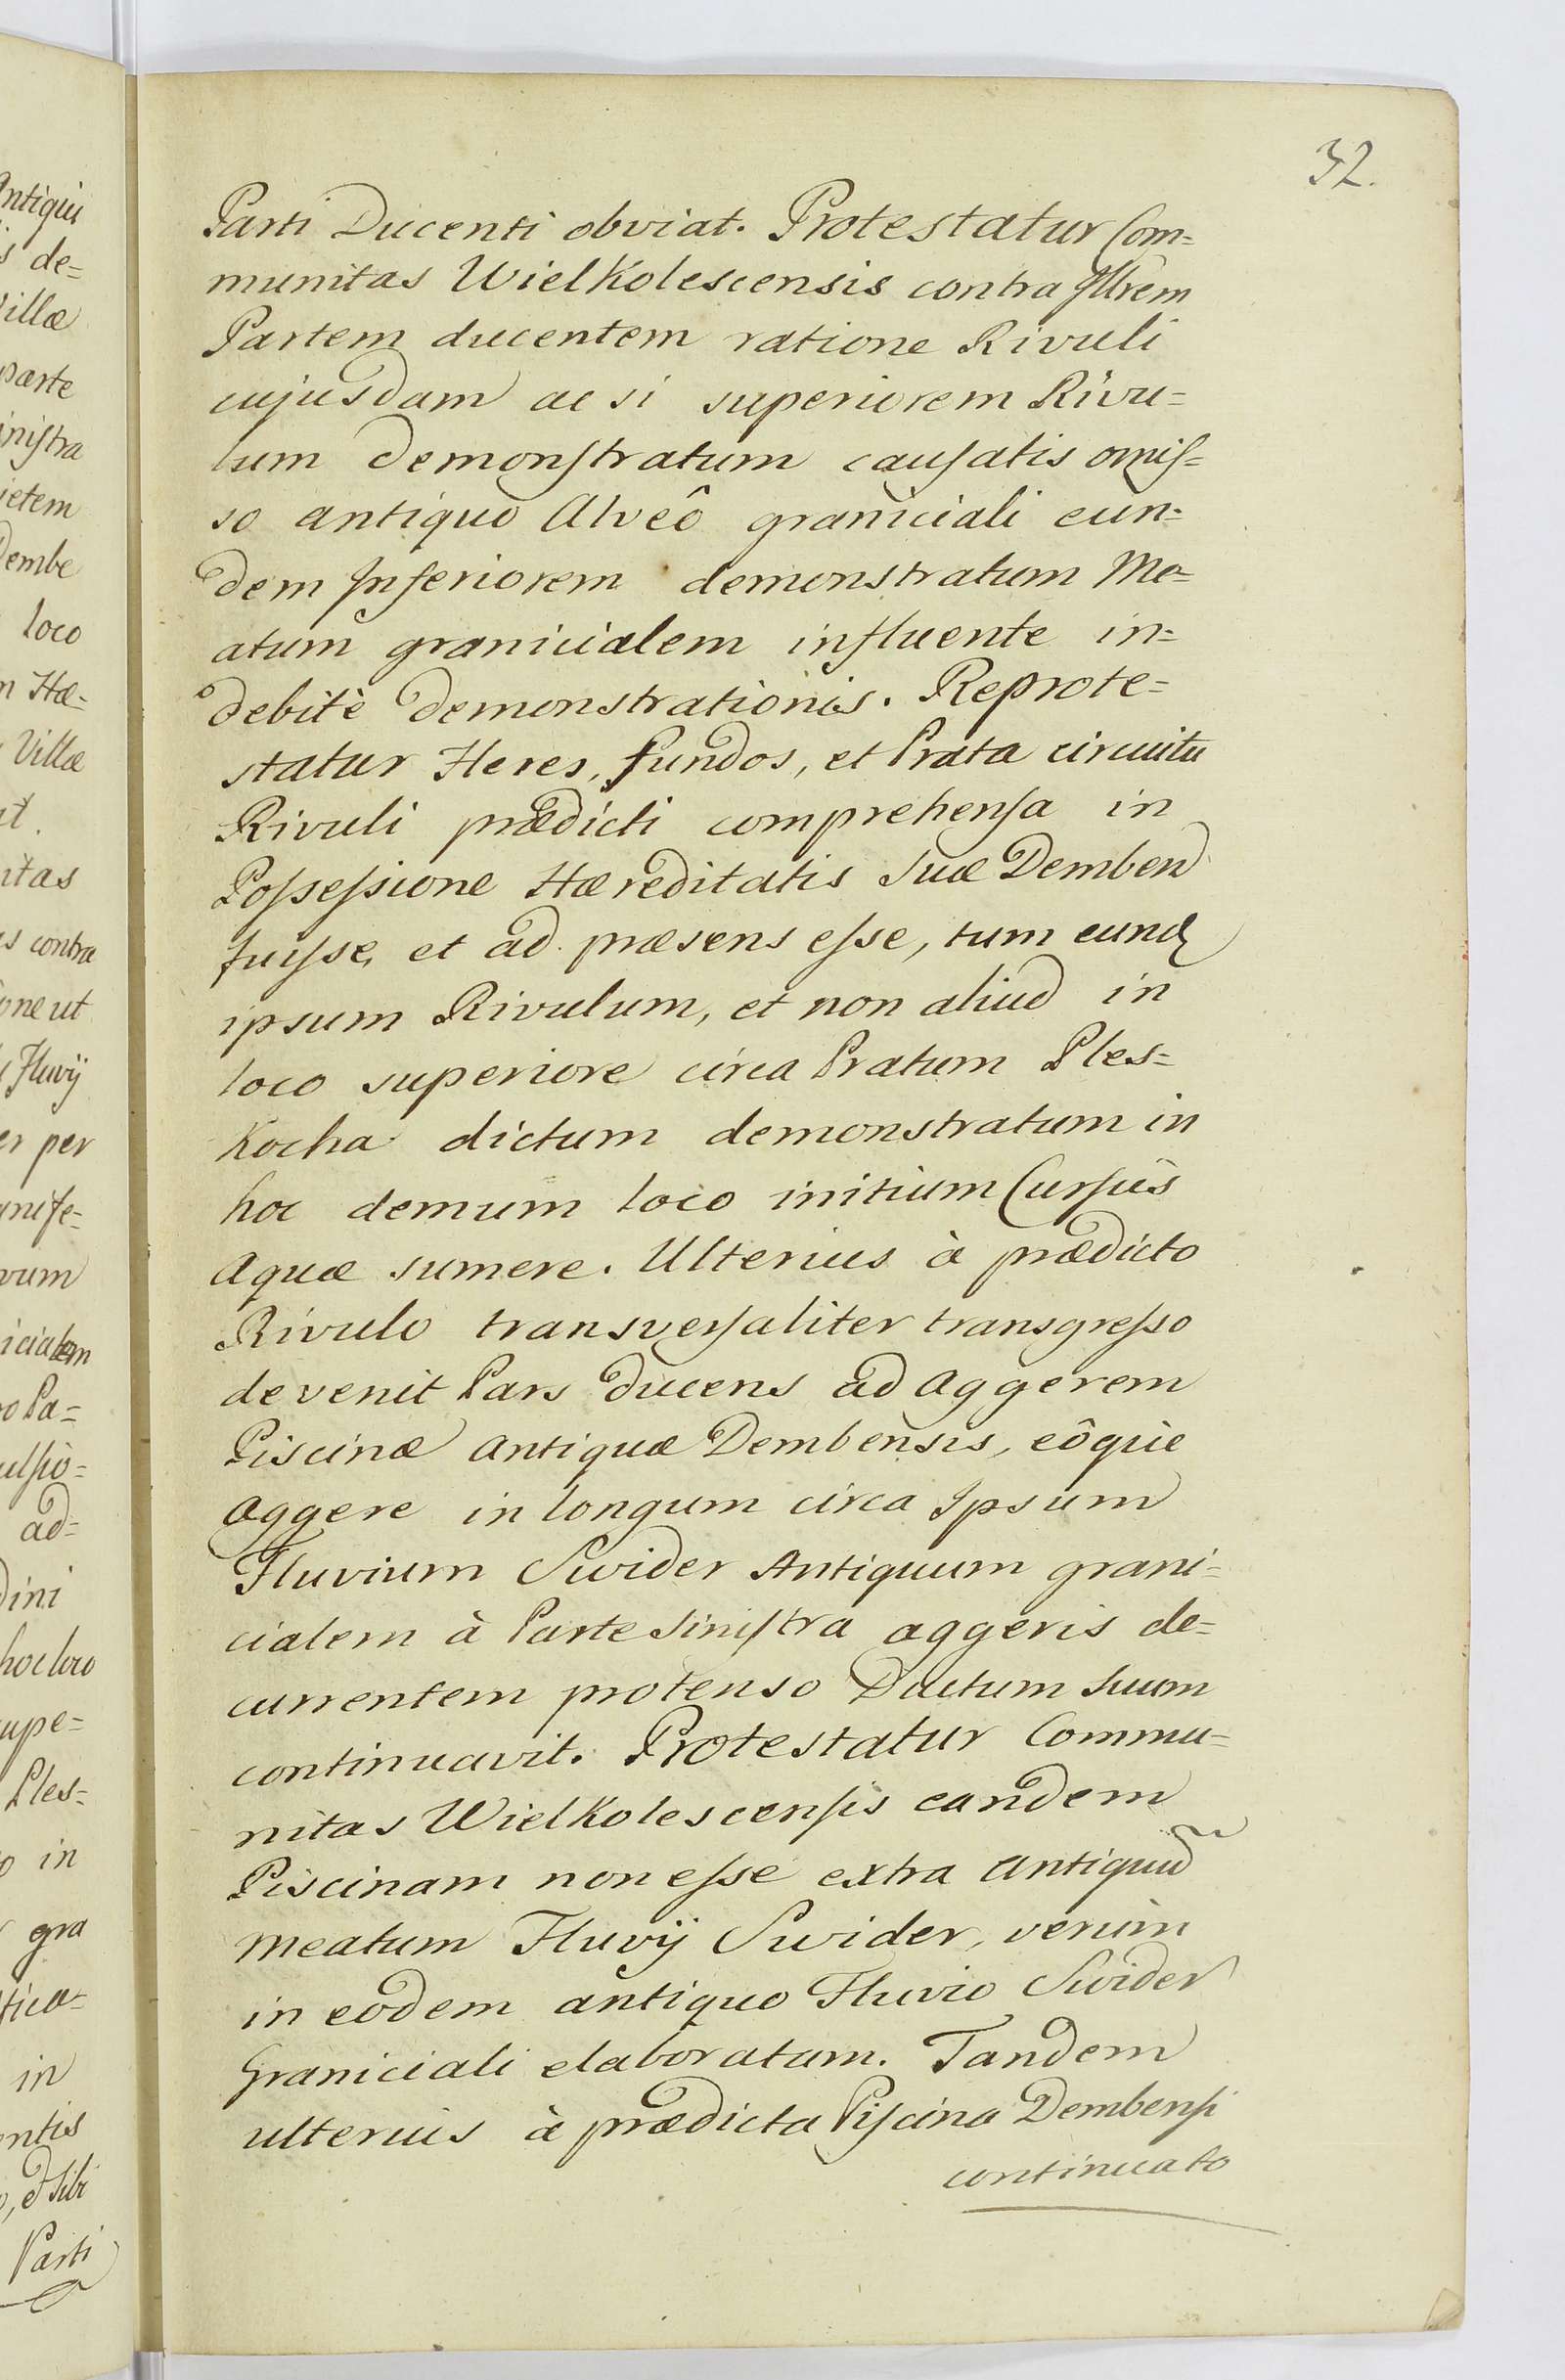 32.
Parti Ducenti obviat. Protestatur Com=
munitas WielKolescensis contra Illrem
Partem ducentem ratione Rivuli
cujusdam ac si superiorem Rivu=
lum demonstratum causatis omis=
so antiquo Alveô graniciali eun=
dem Inferiorem demonstratum Me=
atum granicialem influente in=
debitè demonstrationis. Reprote=
statur Heres, fundos, et Prata circuitu
Rivuli prædicti comprehensa in
Possessione Hæreditatis Suæ Demben
fuisse, et ad præsens esse, tum eund
ipsum Rivulum, et non aliud in
loco superiore circa Pratum Ples=
Kocha dictum demonstratum in
hoc demum loco initium Cursûs
Aquæ sumere. Ulterius à prædicto
Rivulo transversaliter transgresso
devenit Pars ducens ad Aggerem
Piscinæ Antiquæ Dembensis, eôque
Aggere in longum circa Ipsum
Fluvium Swider Antiquum grani=
cialem à Parte Sinistra aggeris de=
currentem protenso Ductum Suum
continuavit. Protestatur Commu=
nitas WielKolescensis eandem
Piscinam non esse extra Antiquũ
Meatum Fluvÿ Swider, verùm
in eodem antiquo Fluvio Swider
Graniciali elaboratam. Tandem
ulterius à prædicta Piscina Dembensi
continuato
Antiqui
s de=
Villæ
parte
inistra
ietem
Dembe
loco
Hæ=
Villæ
itas
s contra
one ut
Fluvÿ
er per
nife=
vum
icialem
o Pa=
ulsio=
ad=
dini
hoc loco
supe=
Ples=
o in
gra
tica=
in
entis
o, et Sibi
Parti